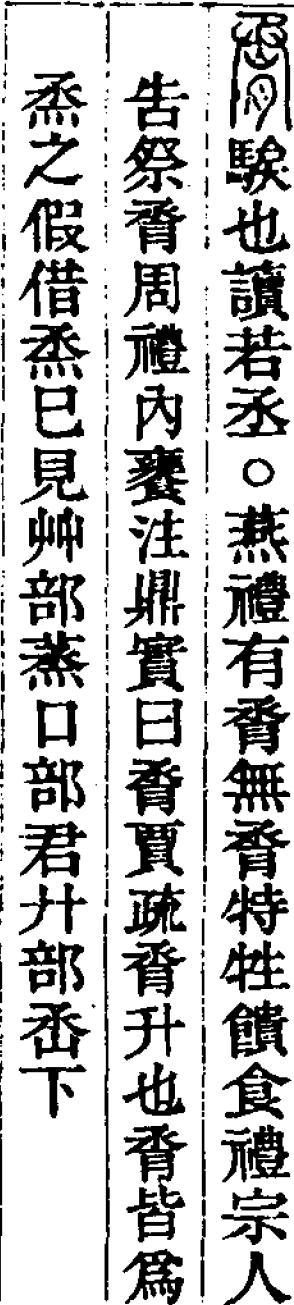 脀騃也讀若丞○燕禮有脀無脀特牲饋食禮宗人
告祭脀周禮內饔注鼎實曰脀賈疏脀升也脀皆爲
烝之假借烝巳見艸部蒸口部君廾部㞼下